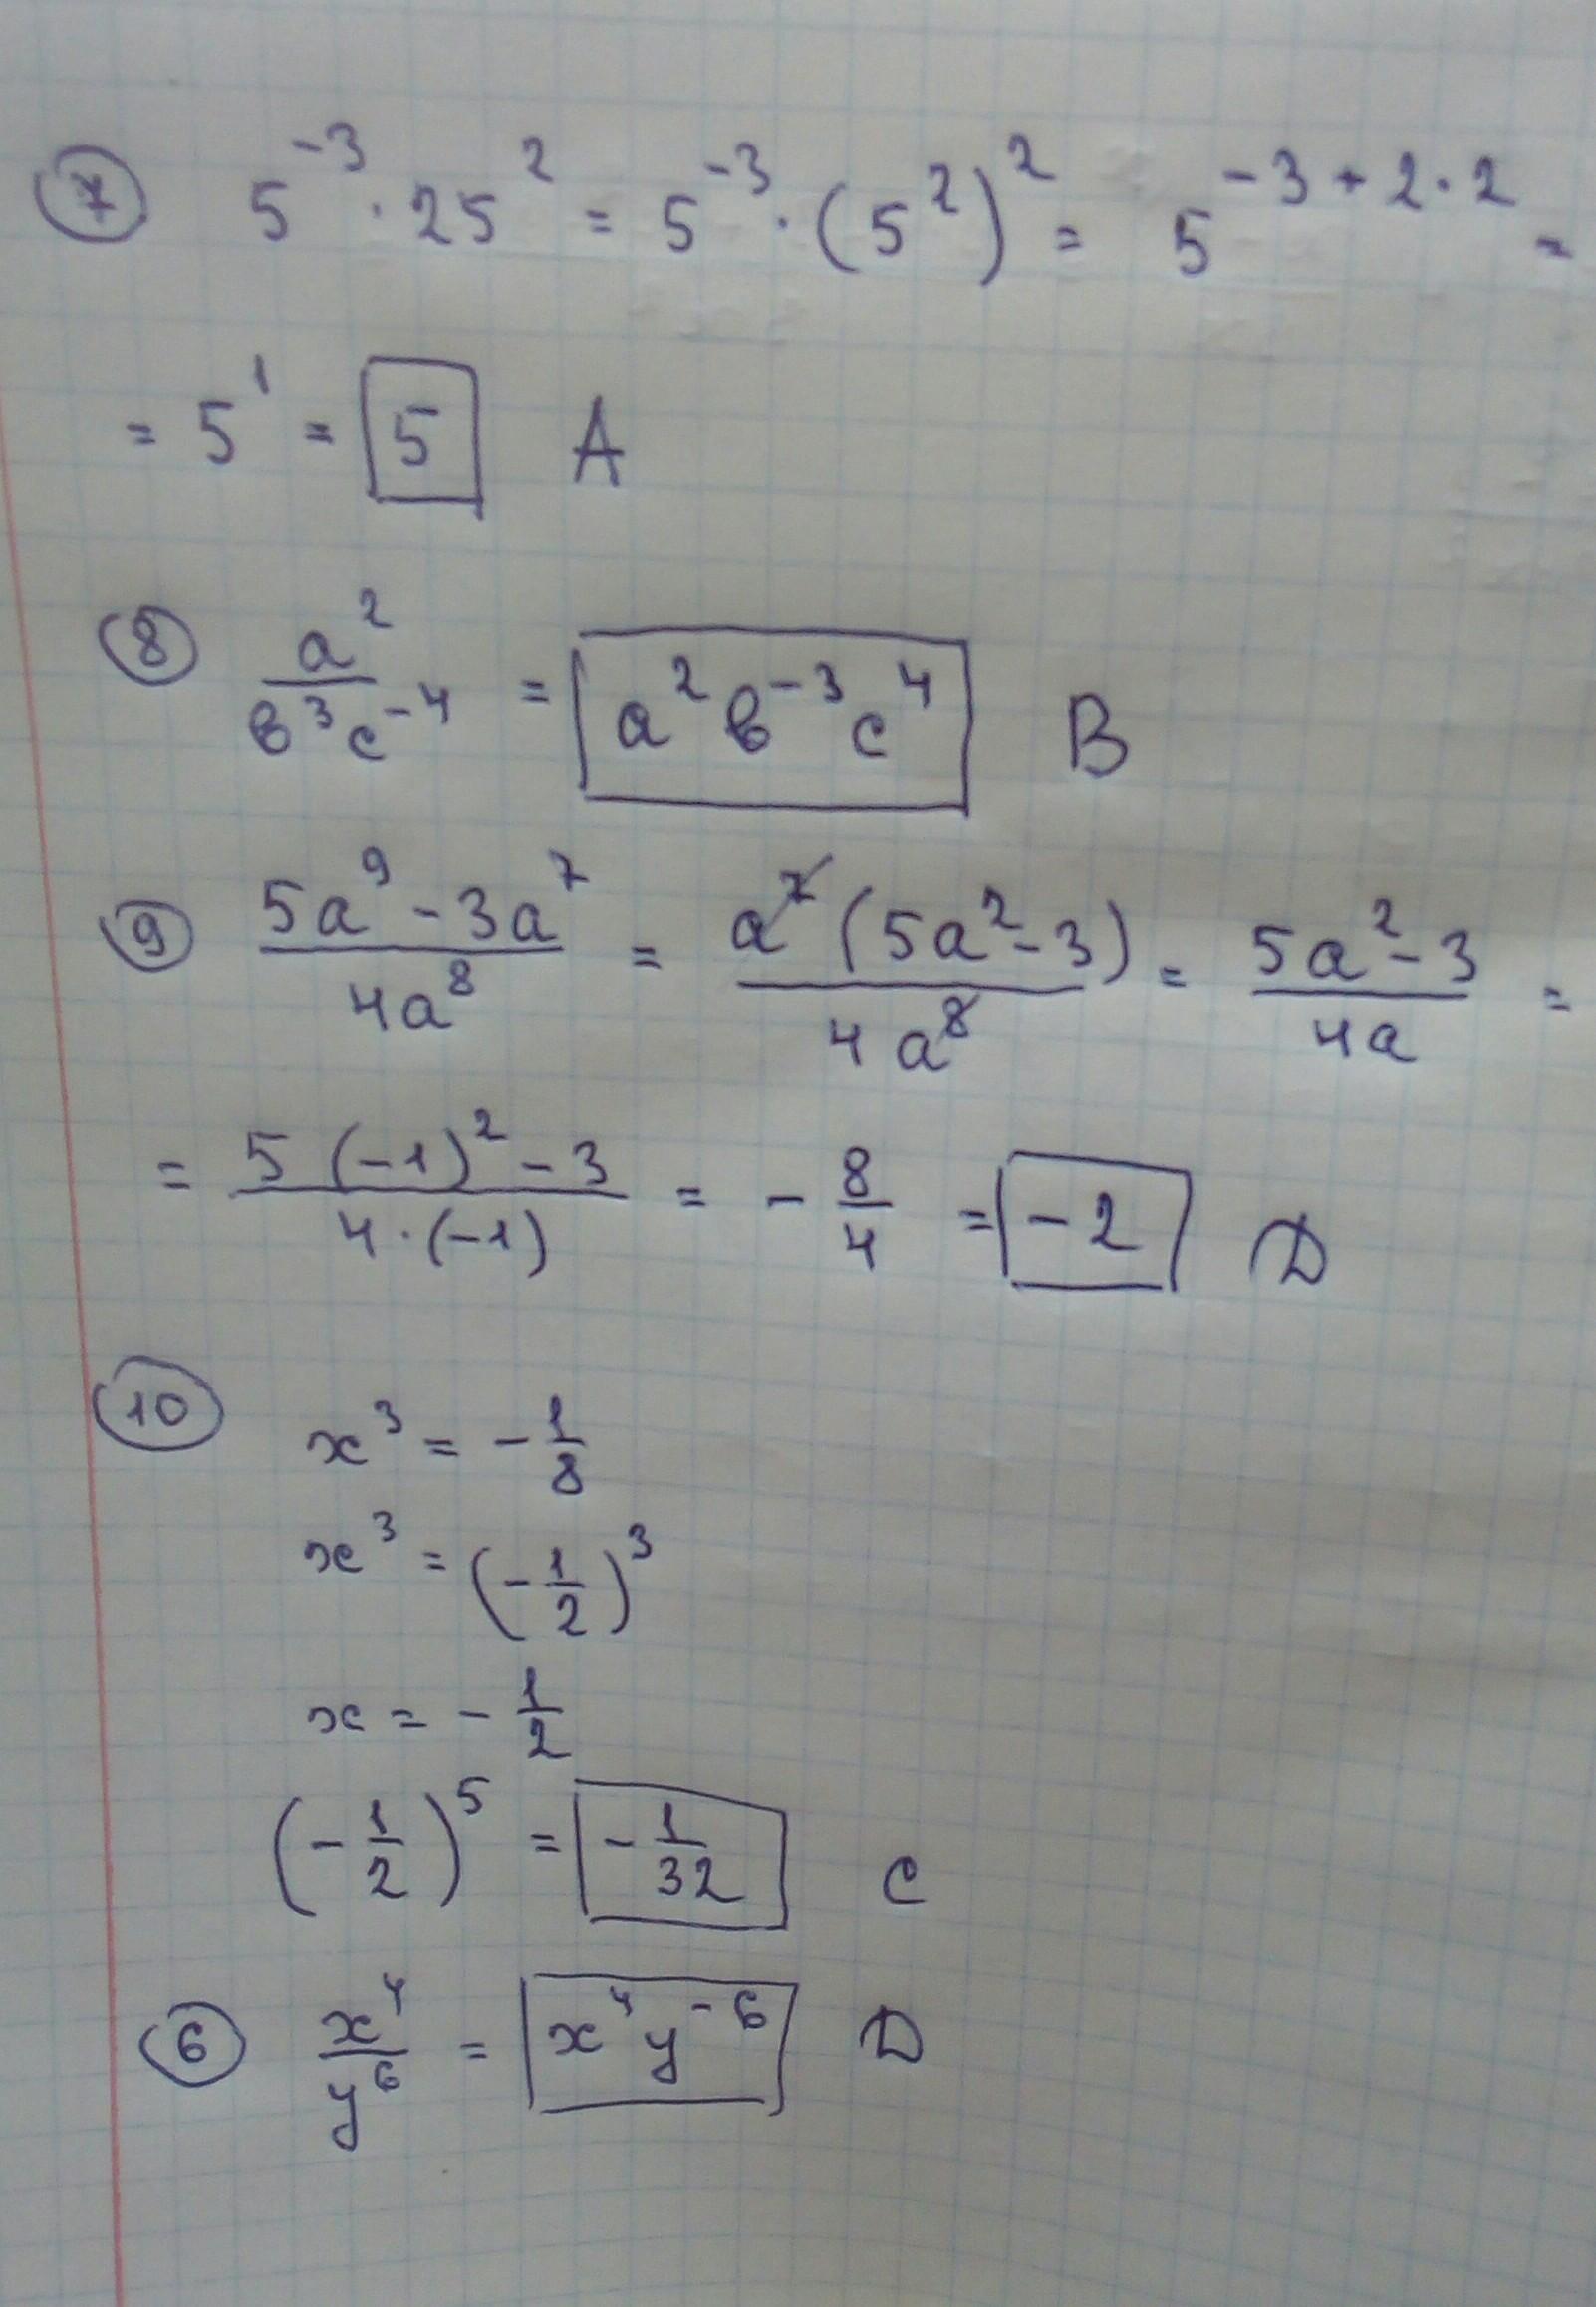 ⑦ 5⁻³ · 25² = 5⁻³ · (5²)² = 5^(-3+2·2) =
= 5¹ = 5 A
⑧ a²/(в³c⁻⁴) = a²в⁻³c⁴ B
⑨ (5a⁹-3a⁷)/(4a⁸) = a⁷(5a²-3)/(4a⁸) = (5a²-3)/(4a) =
= (5(-1)²-3)/(4·(-1)) = -8/4 = -2 D
⑩ x³ = -1/8
x³ = (-1/2)³
x = -1/2
(-1/2)⁵ = -1/32 C
⑥ x⁴/y⁶ = x⁴y⁻⁶ D